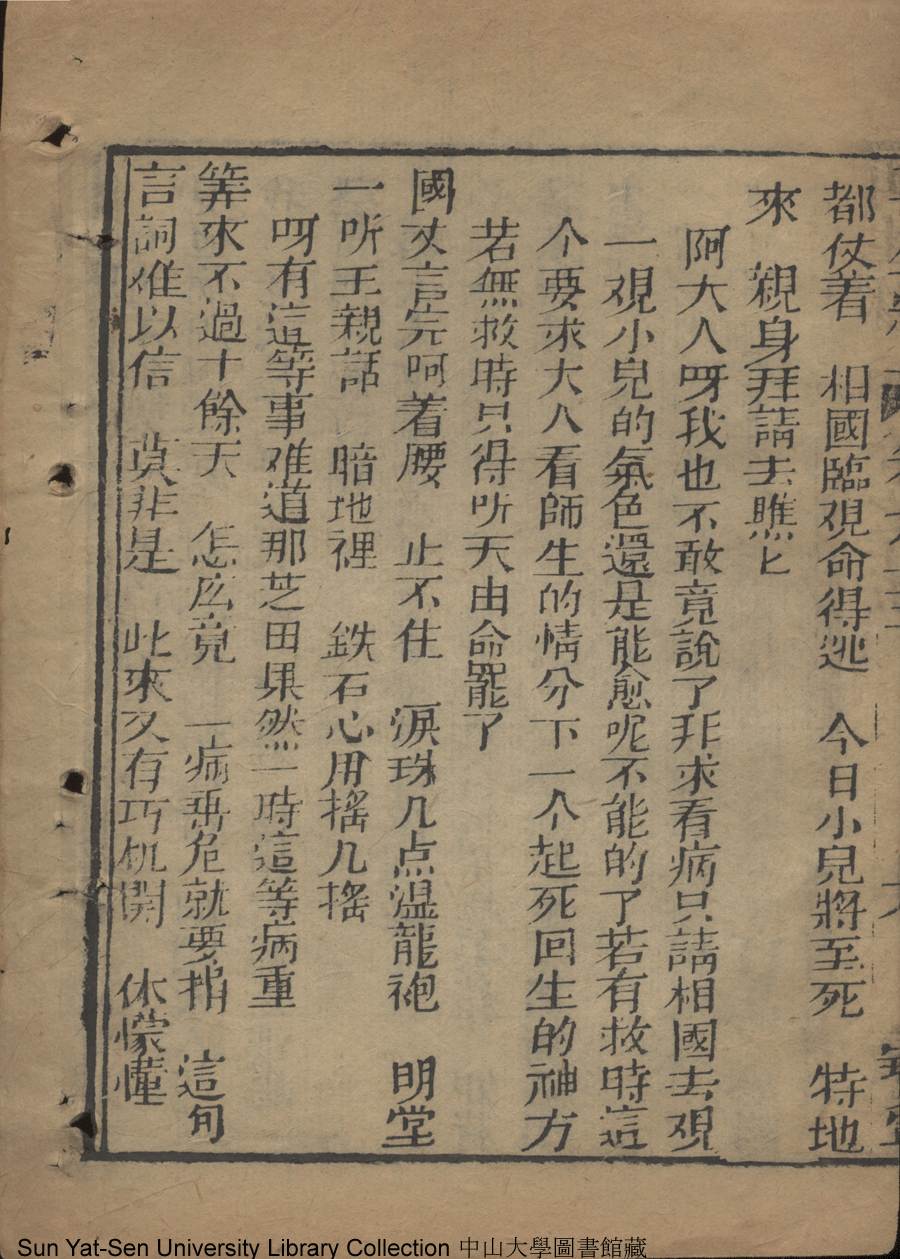 都仗着　相國臨觀命得逃　今日小兒將至死　特地
來　親身拜請去瞧匕
阿大人呀我也不敢竟說了非求看病只請相國去觀
一觀小兒的氣色還是能愈呢不能的了若有救時這
个要求大人看師生的情分下一个起死回生的神方
若無救時只得听天由命罷了
國丈言完呵着腰　止不住　淚珠几点温龍袍　明堂
一听王親話　暗地裡　鉄石心用搖几搖
呀有這等事难道那芝田果然一時這等病重
筭來不過十餘天　怎庅竟　一病垂危就要捐　這句
言詞难以信　莫非是　此來又有巧机関　休懞懂
Sun Yat-Sen University Library Collection 中山大學圖書館藏